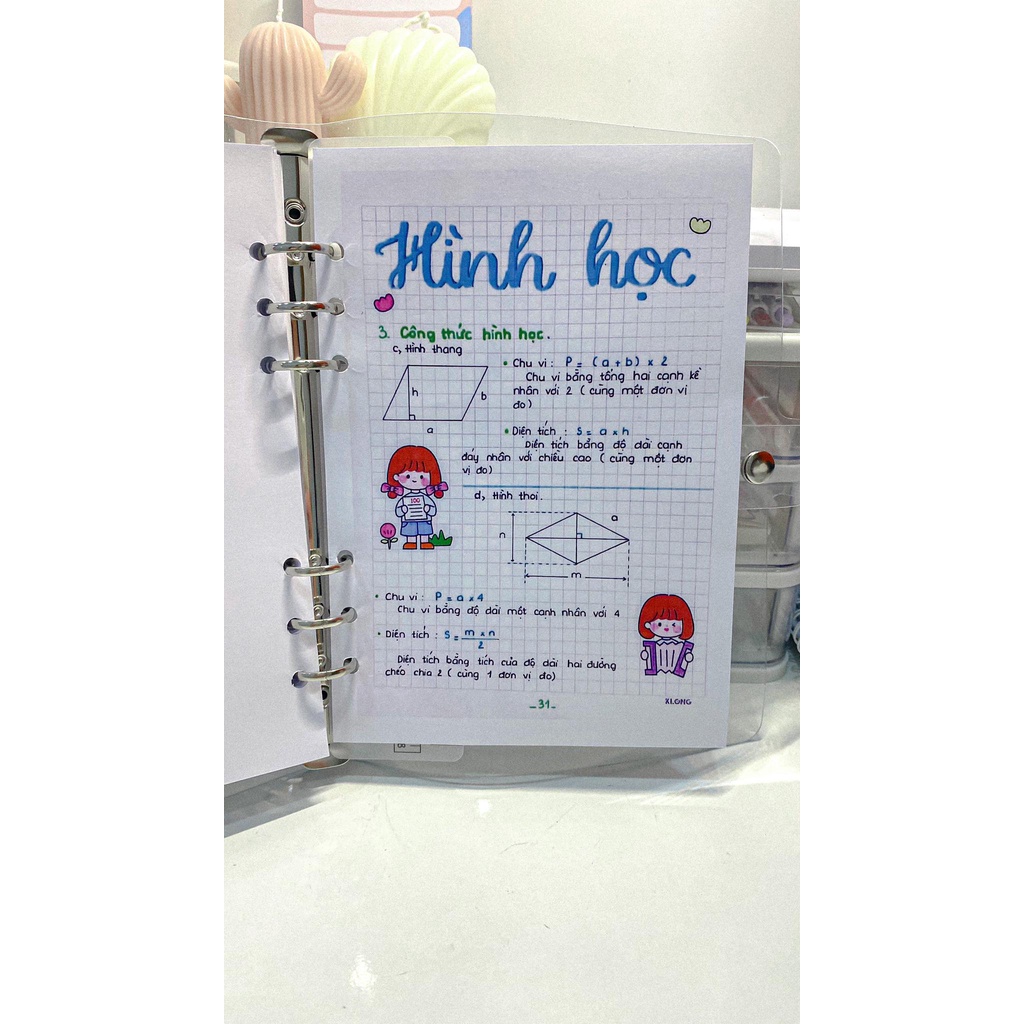 Hình học
3. Công thức hình học.
c, Hình thang
h
b
a
• Chu vi : P = (a + b) x 2
Chu vi bằng tổng hai cạnh kề
nhân với 2 ( cùng một đơn vị
đo)
• Diện tích : S = a x h
Diện tích bằng độ dài cạnh
đáy nhân với chiều cao ( cùng một đơn
vị đo)
100
d, Hình thoi.
a
n
m
• Chu vi : P = a x 4
Chu vi bằng độ dài một cạnh nhân với 4
• Diện tích : S = m x n / 2
Diện tích bằng tích của độ dài hai đường
chéo chia 2 ( cùng 1 đơn vị đo)
_31_
XLONG